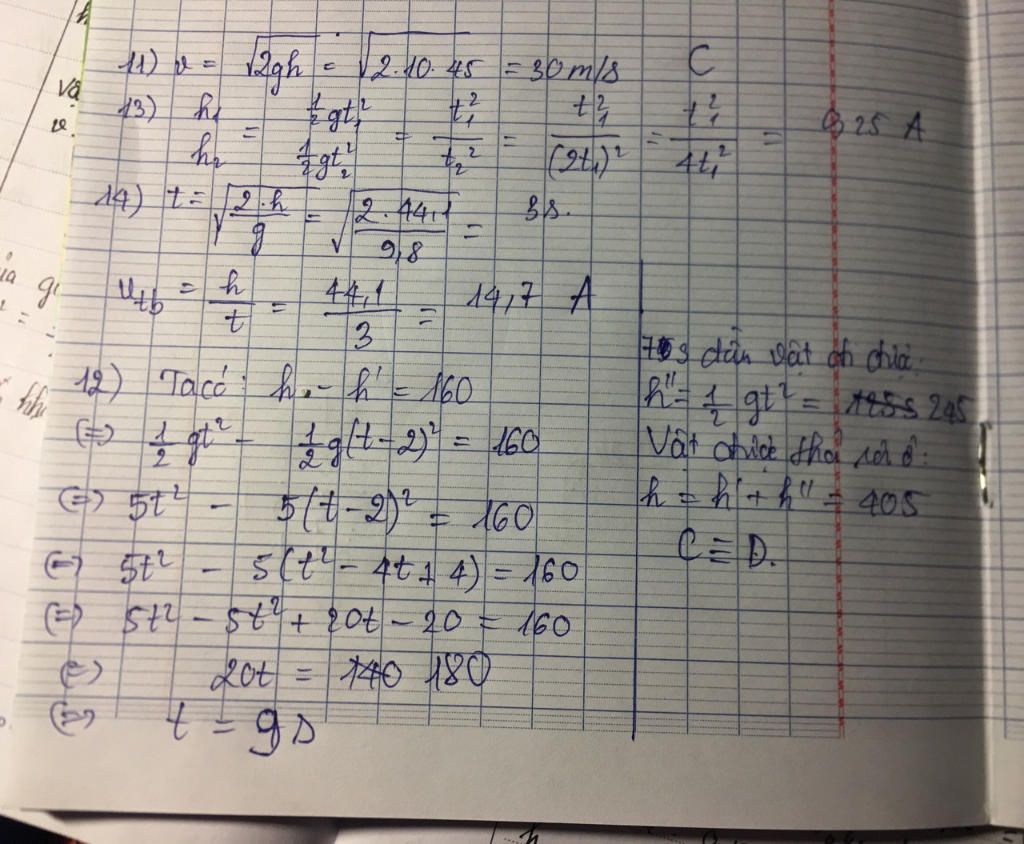 11) v = √2gh = √2.10.45 = 30 m/s C
13) h₁/h₂ = ½gt₁²/½gt₂² = t₁²/t₂² = t₁²/(2t₁)² = t₁²/4t₁² = 0,25 A
14) t = √(2.h/g) = √(2.44,1/9,8) = 3s.
v_tb = h/t = 44,1/3 = 14,7 A
12) Ta có: h - h' = 160
(=) ½gt² - ½g(t-2)² = 160
(=) 5t² - 5(t-2)² = 160
(=) 5t² - 5(t² - 4t + 4) = 160
(=) 5t² - 5t² + 20t - 20 = 160
(=) 20t = 140 180
(=) t = 9s
đầu vật
h'' = ½ gt² = 245
Vật thả rơi ở:
h = h' + h'' = 405
C ≡ D.